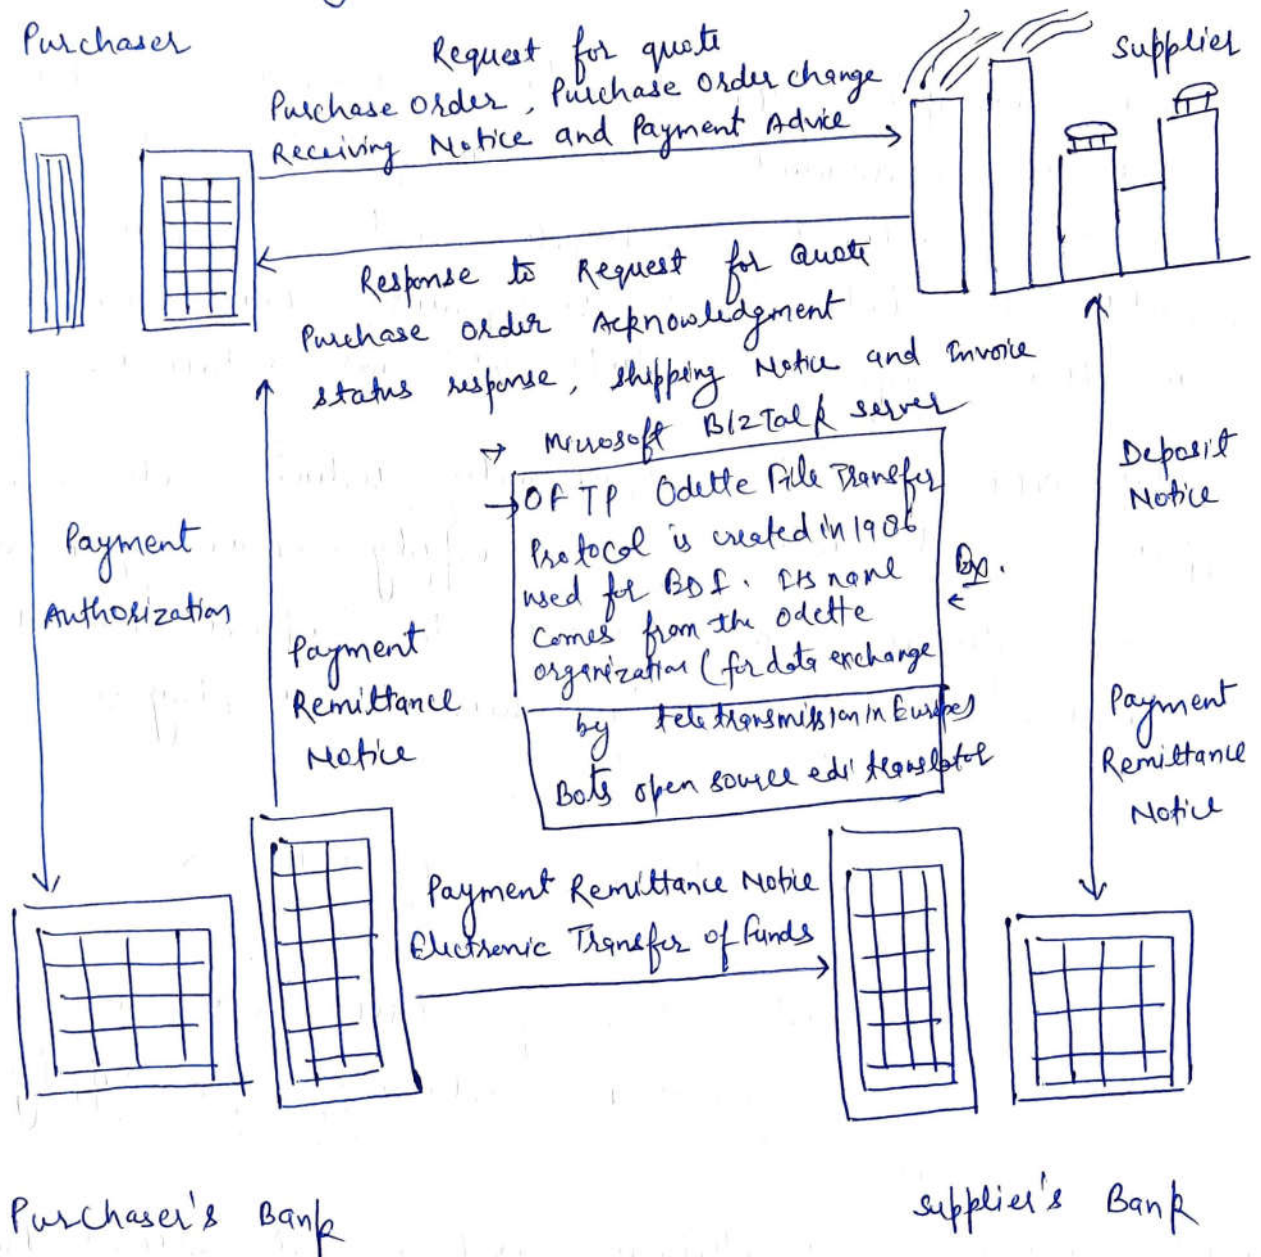 Purchaser
Request for quote
Purchase Order, Purchase Order change
Receiving Notice and Payment Advice
Supplier
Response to Request for Quote
Purchase Order Acknowledgment
status response, shipping Notice and Invoice
→ Microsoft BizTalk server
→ OFTP Odette File Transfer
Protocol is created in 1986
used for EDI. Its name
Comes from the Odette
organization (for data exchange
by teletransmission in Europe)
Bots open source edi translator
Ex.
←
Payment
Authorization
Payment
Remittance
Notice
Deposit
Notice
Payment
Remittance
Notice
Payment Remittance Notice
Electronic Transfer of Funds
Purchaser's Bank
supplier's Bank